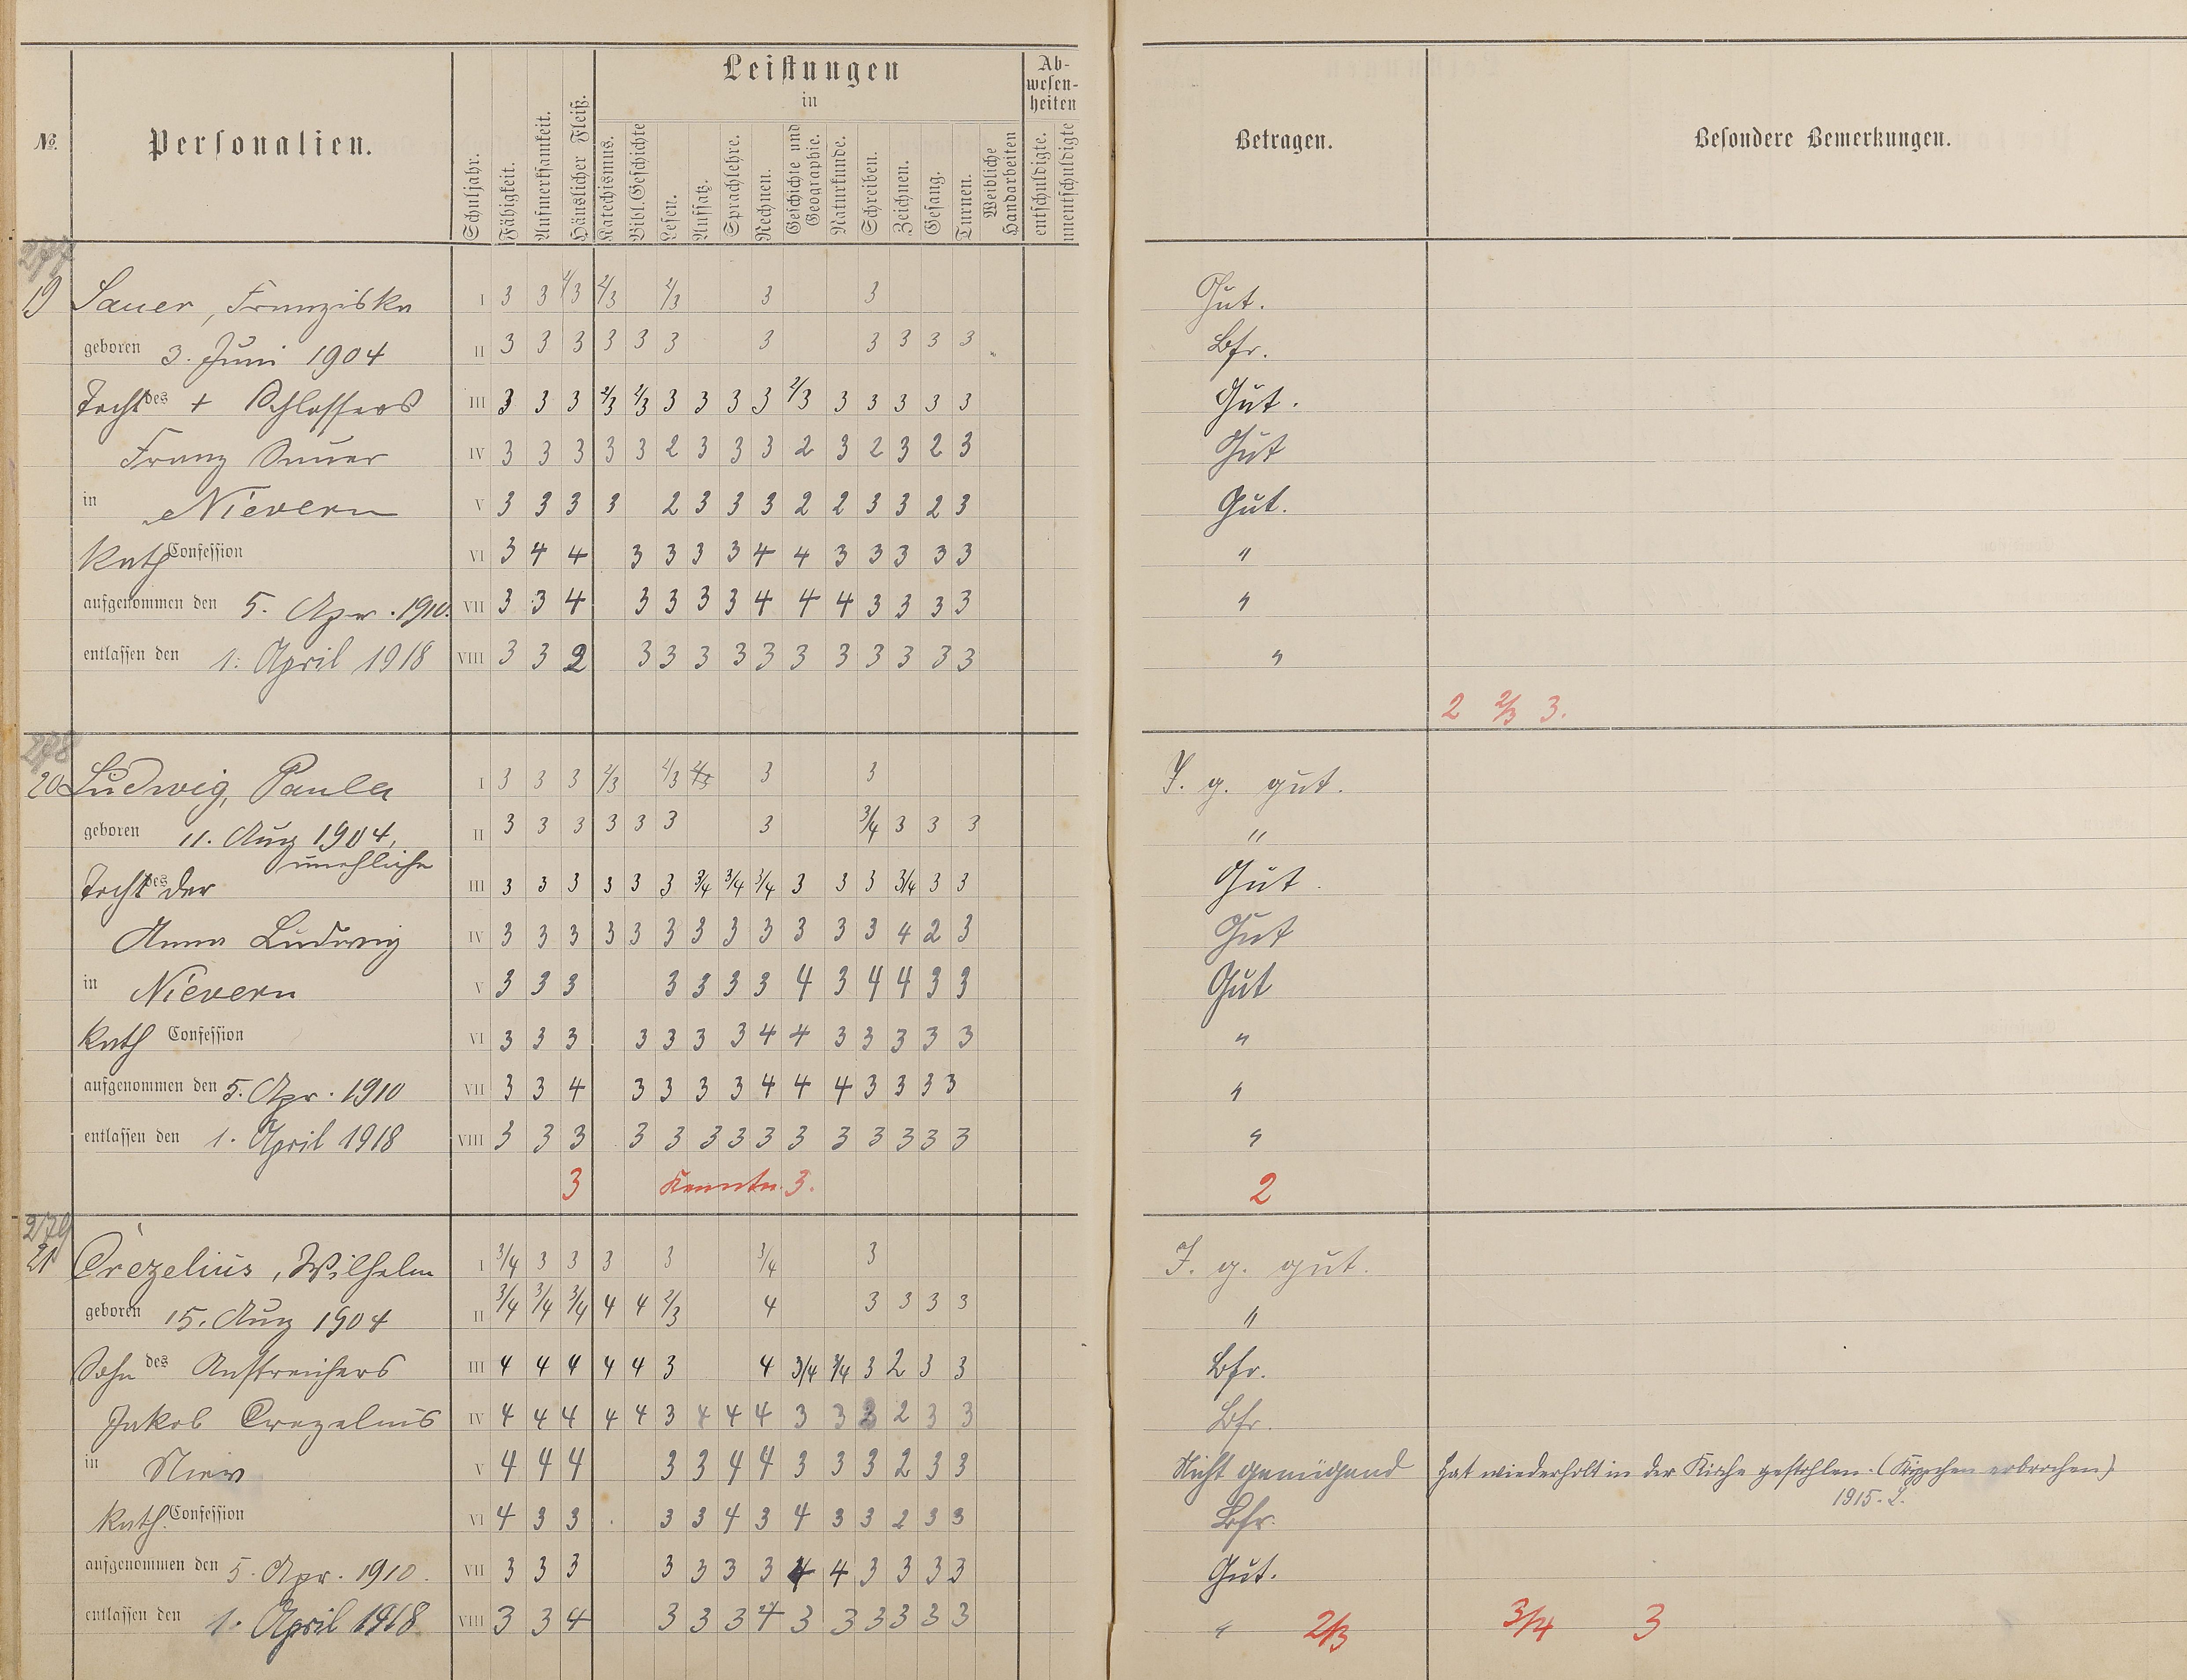 Leistungen
in
Ab-
wesen-
heiten
No.
Personalien.
Schuljahr.
Fähigkeit.
Aufmerksamkeit.
Häuslicher Fleiß.
Katechismus.
Bibl. Geschichte
Lesen.
Aufsatz.
Sprachlehre.
Rechnen.
Geschichte und
Geographie.
Naturkunde.
Schreiben.
Zeichnen.
Gesang.
Turnen.
Weibliche
Handarbeiten
entschuldigte.
unentschuldigte
Betragen.
Besondere Bemerkungen.
277
19 Sauer, Franziska I 3 3 2/3 2/3 2/3 3 3 Gut.
geboren 3. Juni 1904 II 3 3 3 3 3 3 3 3 3 3 3 Bfr.
Tocht des + Schlossers III 3 3 3 2/3 2/3 3 3 3 3 2/3 3 3 3 3 3 Gut.
Franz Sauer IV 3 3 3 3 3 2 3 3 3 2 3 2 3 2 3 Gut
in Nievern V 3 3 3 3 2 3 3 3 2 2 3 3 2 3 Gut.
Kath Confession VI 3 4 4 3 3 3 3 4 4 3 3 3 3 3 "
aufgenommen den 5. Apr. 1910. VII 3 3 4 3 3 3 3 4 4 4 3 3 3 3 "
entlassen den 1. April 1918 VIII 3 3 2 3 3 3 3 3 3 3 3 3 3 3 "
2 2/3 3.
278
20 Ludwig, Paula I 3 3 3 2/3 2/3 2/3 3 3 I. g. gut.
geboren 11. Aug 1904, II 3 3 3 3 3 3 3 3/4 3 3 3 "
unehliche
Tocht des der III 3 3 3 3 3 3 3/4 3/4 3/4 3 3 3 3/4 3 3 Gut.
Anna Ludwig IV 3 3 3 3 3 3 3 3 3 3 3 3 4 2 3 Gut
in Nievern V 3 3 3 3 3 3 3 4 3 4 4 3 3 Gut
Kath Confession VI 3 3 3 3 3 3 3 4 4 3 3 3 3 3 "
aufgenommen den 5. Apr. 1910 VII 3 3 4 3 3 3 3 4 4 4 3 3 3 3 "
entlassen den 1. April 1918 VIII 3 3 3 3 3 3 3 3 3 3 3 3 3 3 "
3 Kenntn. 3. 2
279
21 Crezelius, Wilhelm I 3/4 3 3 3 3 3/4 3 I. g. gut.
geboren 15. Aug 1904 II 3/4 3/4 3/4 4 4 2/3 4 3 3 3 3 "
Sohn des Anstreichers III 4 4 4 4 4 3 4 3/4 3/4 3 2 3 3 Bfr.
Jakob Crezelius IV 4 4 4 4 4 3 4 4 4 3 3 3 2 3 3 Bfr.
in Niev V 4 4 4 3 3 4 4 3 3 3 2 3 3 Nicht genügend Hat wiederholt in der Kirche gestohlen. (erbrochen)
1915. L.
Kath. Confession VI 4 3 3 3 3 4 3 4 3 3 2 3 3 Bfr.
aufgenommen den 5. Apr. 1910. VII 3 3 3 3 3 3 3 4 4 3 3 3 3 Gut.
entlassen den 1. April 1918 VIII 3 3 4 3 3 3 4 3 3 3 3 3 3 " 2/3 3/4 3